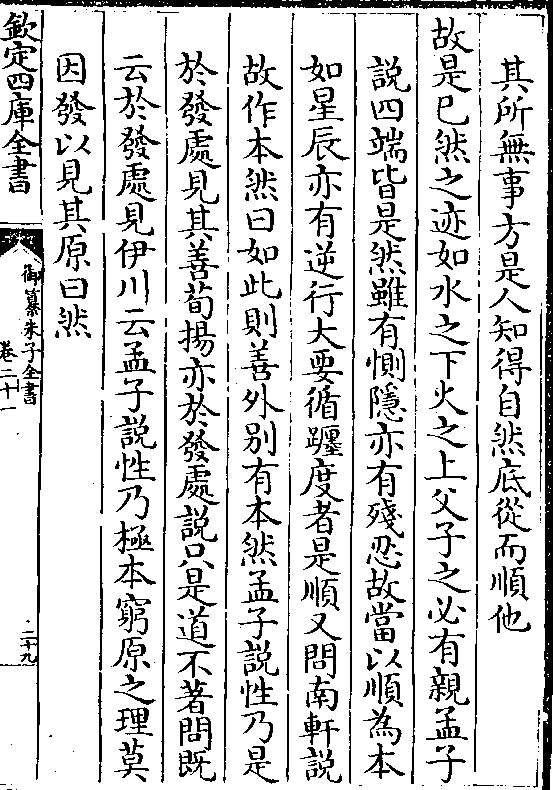 其所無事方是人知得自然底從而順他
故是已然之迹如水之下火之上父子之必有親孟子
說四端皆是然雖有惻隱亦有殘忍故當以順為本
如星辰亦有逆行大要循躔度者是順又問南軒說
故作本然曰如此則善外别有本然孟子說性乃是
於發處見其善荀揚亦於發處說只是道不著問既
云於發處見伊川云孟子說性乃極本窮原之理莫
因發以見其原曰然
欽定四庫全書
御纂朱子全書
卷二十一
二十九